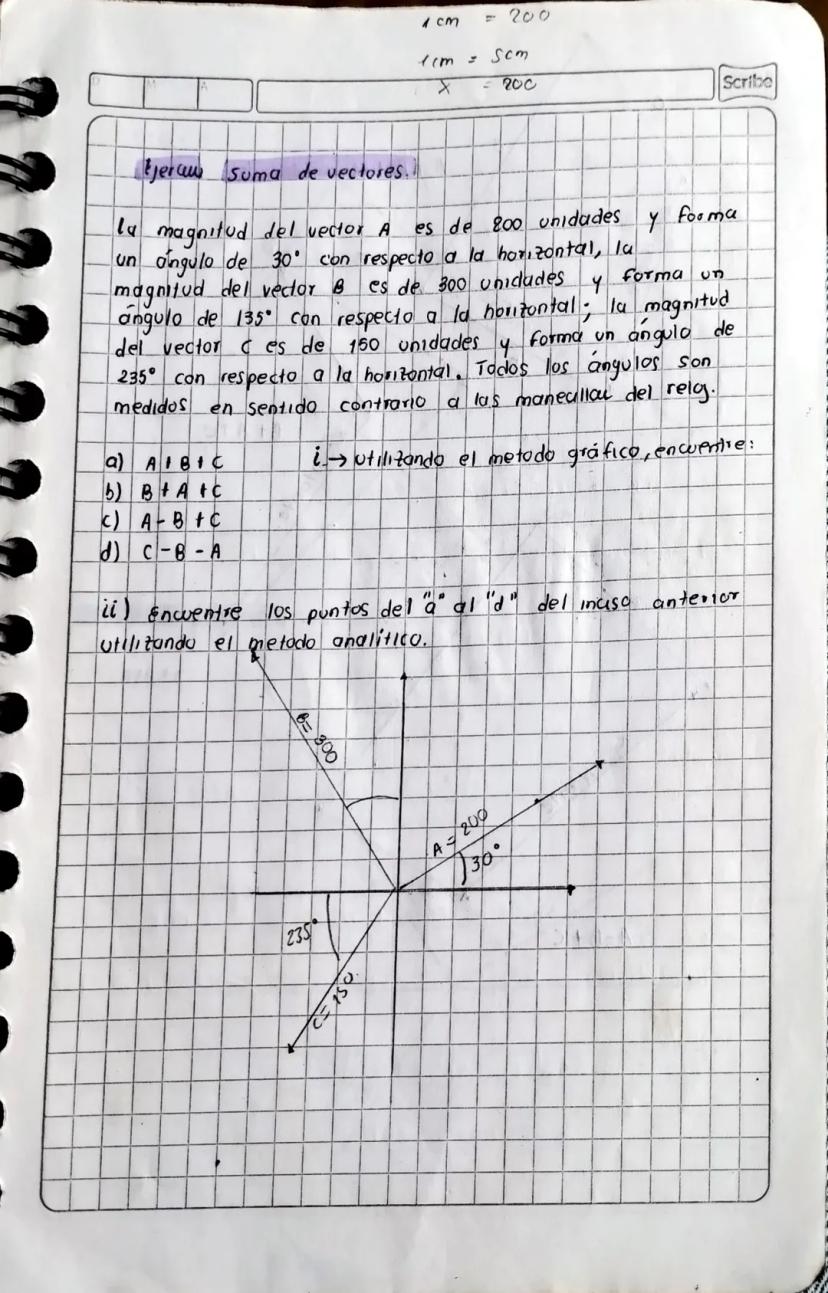 1cm = 200
1cm = 5cm
x = 200
Scribe
Suma de vectores.
la magnitud del vector A es de 200 unidades y forma
un ángulo de 30° con respecto a la horizontal, la
magnitud del vector B es de 300 unidades y forma un
ángulo de 135° con respecto a la horizontal; la magnitud
del vector C es de 150 unidades y forma un ángulo de
235° con respecto a la horizontal. Todos los ángulos son
medidos en sentido contrario a las del reloj.
a) A + B + C
i. → utilizando el metodo gráfico, encuentre:
b) B + A + C
c) A - B + C
d) C - B - A
ii) Encuentre los puntos del "a" al "d" del inciso anterior
utilizando el metodo analítico.
B = 300
A = 200
30°
235°
C = 150